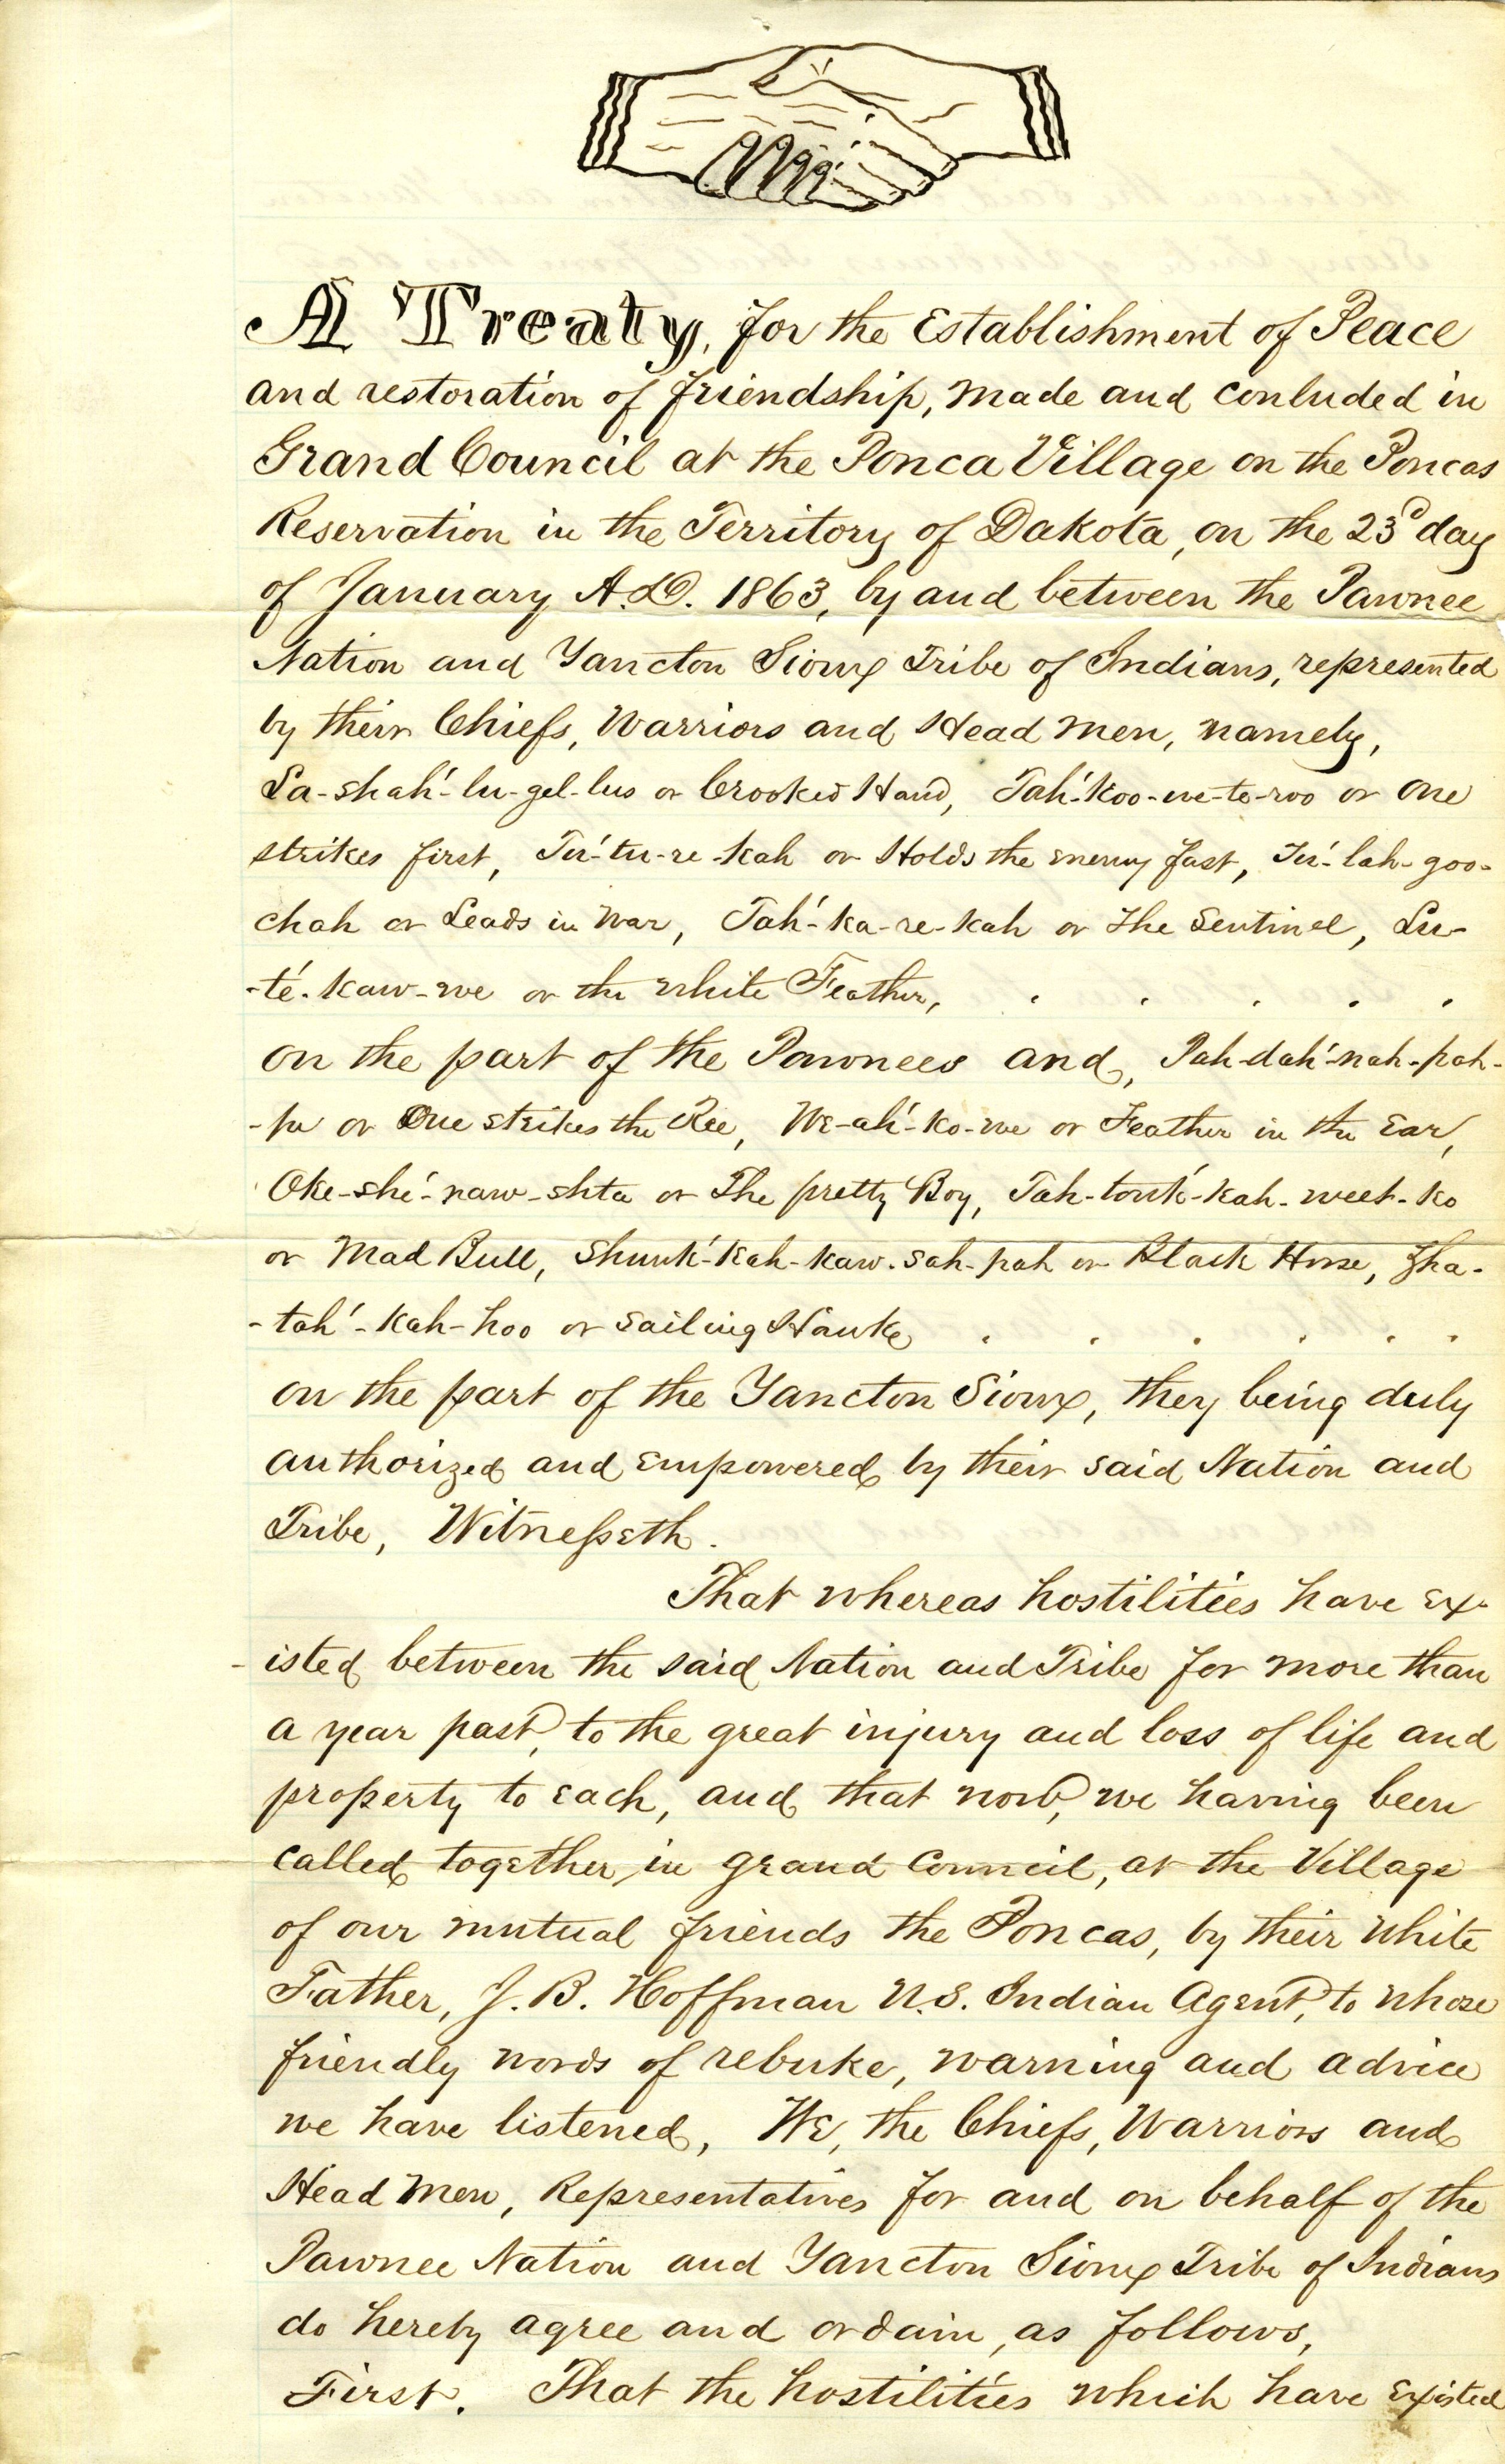 A Treaty, for the Establishment of Peace
and restoration of friendship, made and conluded in
Grand Council at the Ponca Village on the Poncas
Reservation in the Territory of Dakota, on the 23d day
of January A.D. 1863, by and between the Pawnee
Nation and Yancton Sioux Tribe of Indians, represented
by their Chiefs, Warriors and Head Men, namely,
La-shah'-lu-gel-lus or Crooked Hand, Tah'-Koo-we-te-roo or One
strikes first, Tu'-tu-re-kah or Holds the enemy fast, Tu'-lah-goo-
chah or Leads in War, Tah'-ka-re-kah or The Sentinel, Lu-
-té-kaw-we or the White Feather, . . . . .
on the part of the Pawnees and, Pah-dah'-nah-pah-
-pu or One strikes the Ree, We-ah'-ko-we or Feather in the Ear,
Oke-she'-naw-shta or The pretty Boy, Tah-tonk'-kah-weet-ko
or Mad Bull, Shunk'-kah-kaw-sah-pah or Black Horse, Zha-
-tah'-kah-hoo or Sailing Hawk . . . . . .
on the part of the Yancton Sioux, they being duly
authorized and empowered by their said Nation and
Tribe, Witnesseth.
That whereas hostilities have ex-
-isted between the said Nation and Tribe for more than
a year past, to the great injury and loss of life and
property to each, and that now, we having been
called together in grand Council, at the Village
of our mutual friends the Poncas, by their White
Father, J. B. Hoffman U.S. Indian Agent, to whose
friendly words of rebuke, warning and advice
we have listened, We, the Chiefs, Warriors and
Head Men, Representatives for and on behalf of the
Pawnee Nation and Yancton Sioux Tribe of Indians
do hereby agree and ordain, as follows,
First. That the hostilities which have existed